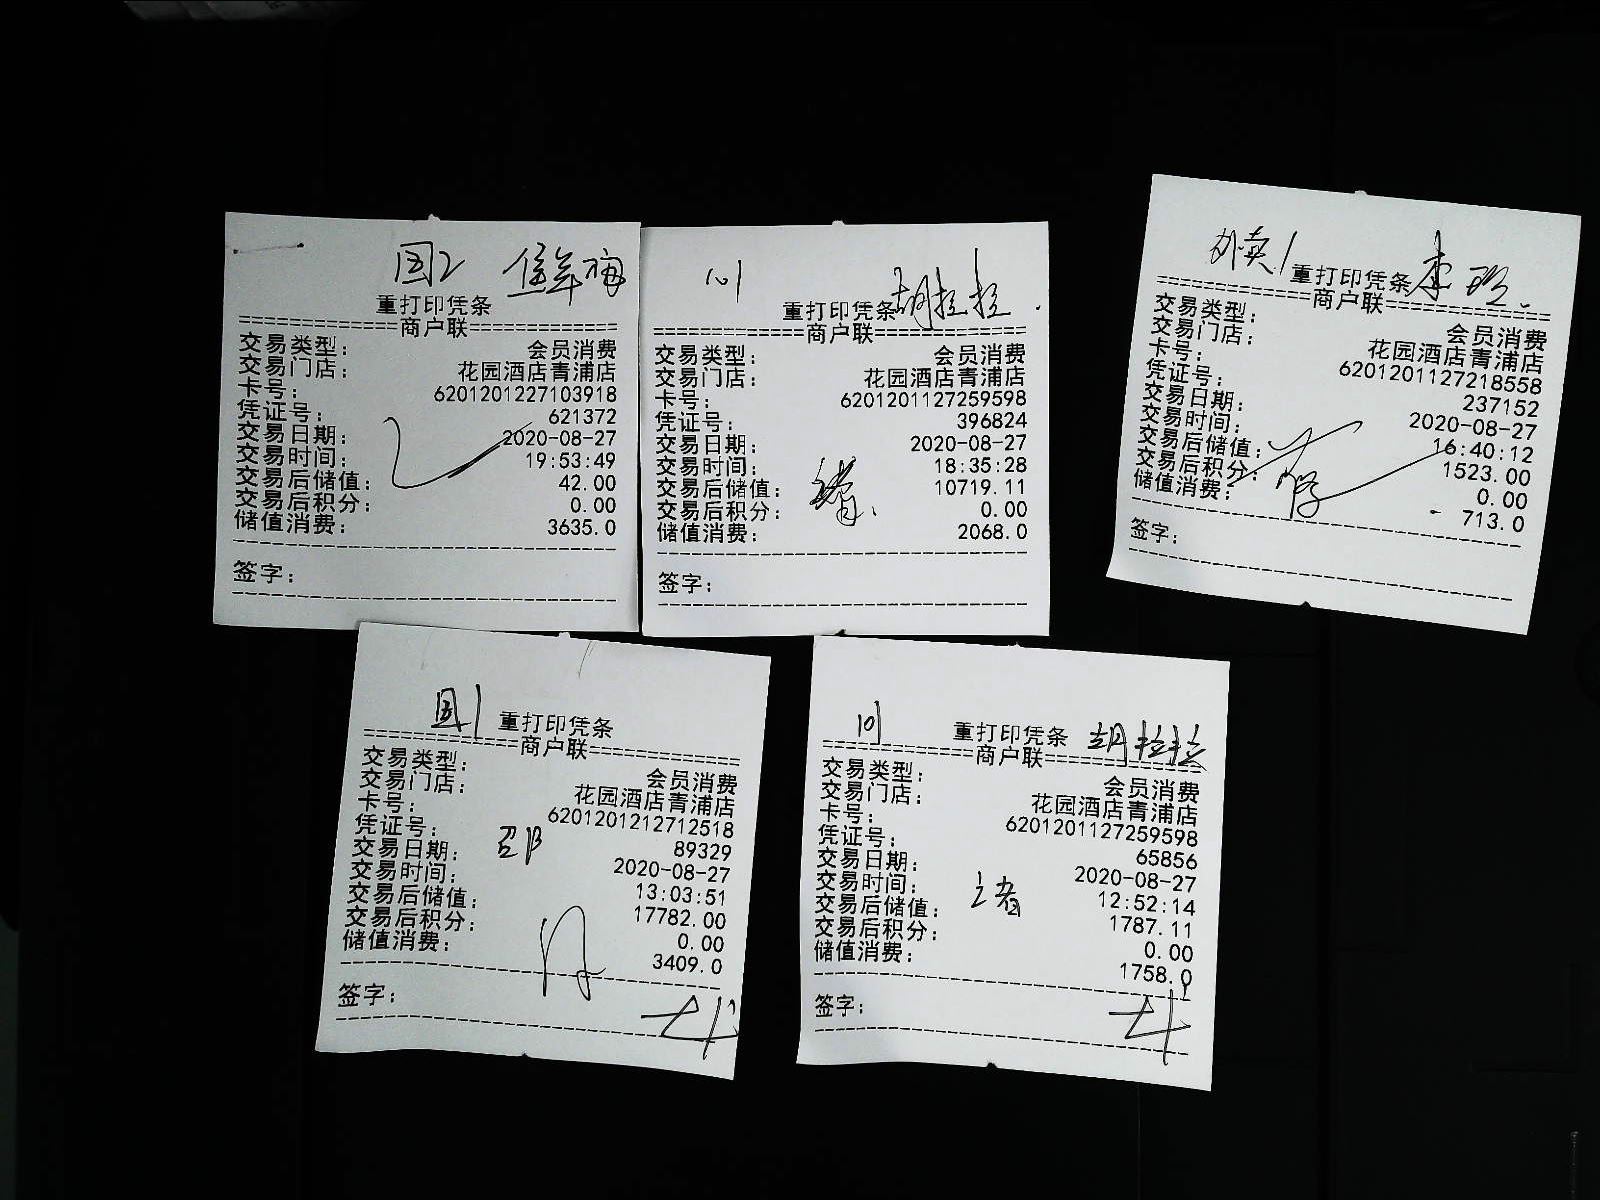 重打印凭条
==========商户联==========
交易类型: 会员消费
交易门店: 花园酒店青浦店
卡号: 6201201227103918
凭证号: 621372
交易日期: 2020-08-27
交易时间: 19:53:49
交易后储值: 42.00
交易后积分: 0.00
储值消费: 3635.0
签字:
101 胡拉拉
重打印凭条
==========商户联==========
交易类型: 会员消费
交易门店: 花园酒店青浦店
卡号: 6201201127259598
凭证号: 396824
交易日期: 2020-08-27
交易时间: 18:35:28
交易后储值: 10719.11
交易后积分: 0.00
储值消费: 2068.0
签字:
外卖1
重打印凭条
==========商户联==========
交易类型: 会员消费
交易门店: 花园酒店青浦店
卡号: 6201201127218558
凭证号: 237152
交易日期: 2020-08-27
交易时间: 16:40:12
交易后储值: 1523.00
交易后积分: 0.00
储值消费: 713.0
签字:
重打印凭条
==========商户联==========
交易类型: 会员消费
交易门店: 花园酒店青浦店
卡号: 6201201212712518
凭证号: 89329
交易日期: 2020-08-27
交易时间: 13:03:51
交易后储值: 17782.00
交易后积分: 0.00
储值消费: 3409.0
签字:
101 重打印凭条 胡拉拉
==========商户联==========
交易类型: 会员消费
交易门店: 花园酒店青浦店
卡号: 6201201127259598
凭证号: 65856
交易日期: 2020-08-27
交易时间: 12:52:14
交易后储值: 1787.11
交易后积分: 0.00
储值消费: 1758.0
签字: